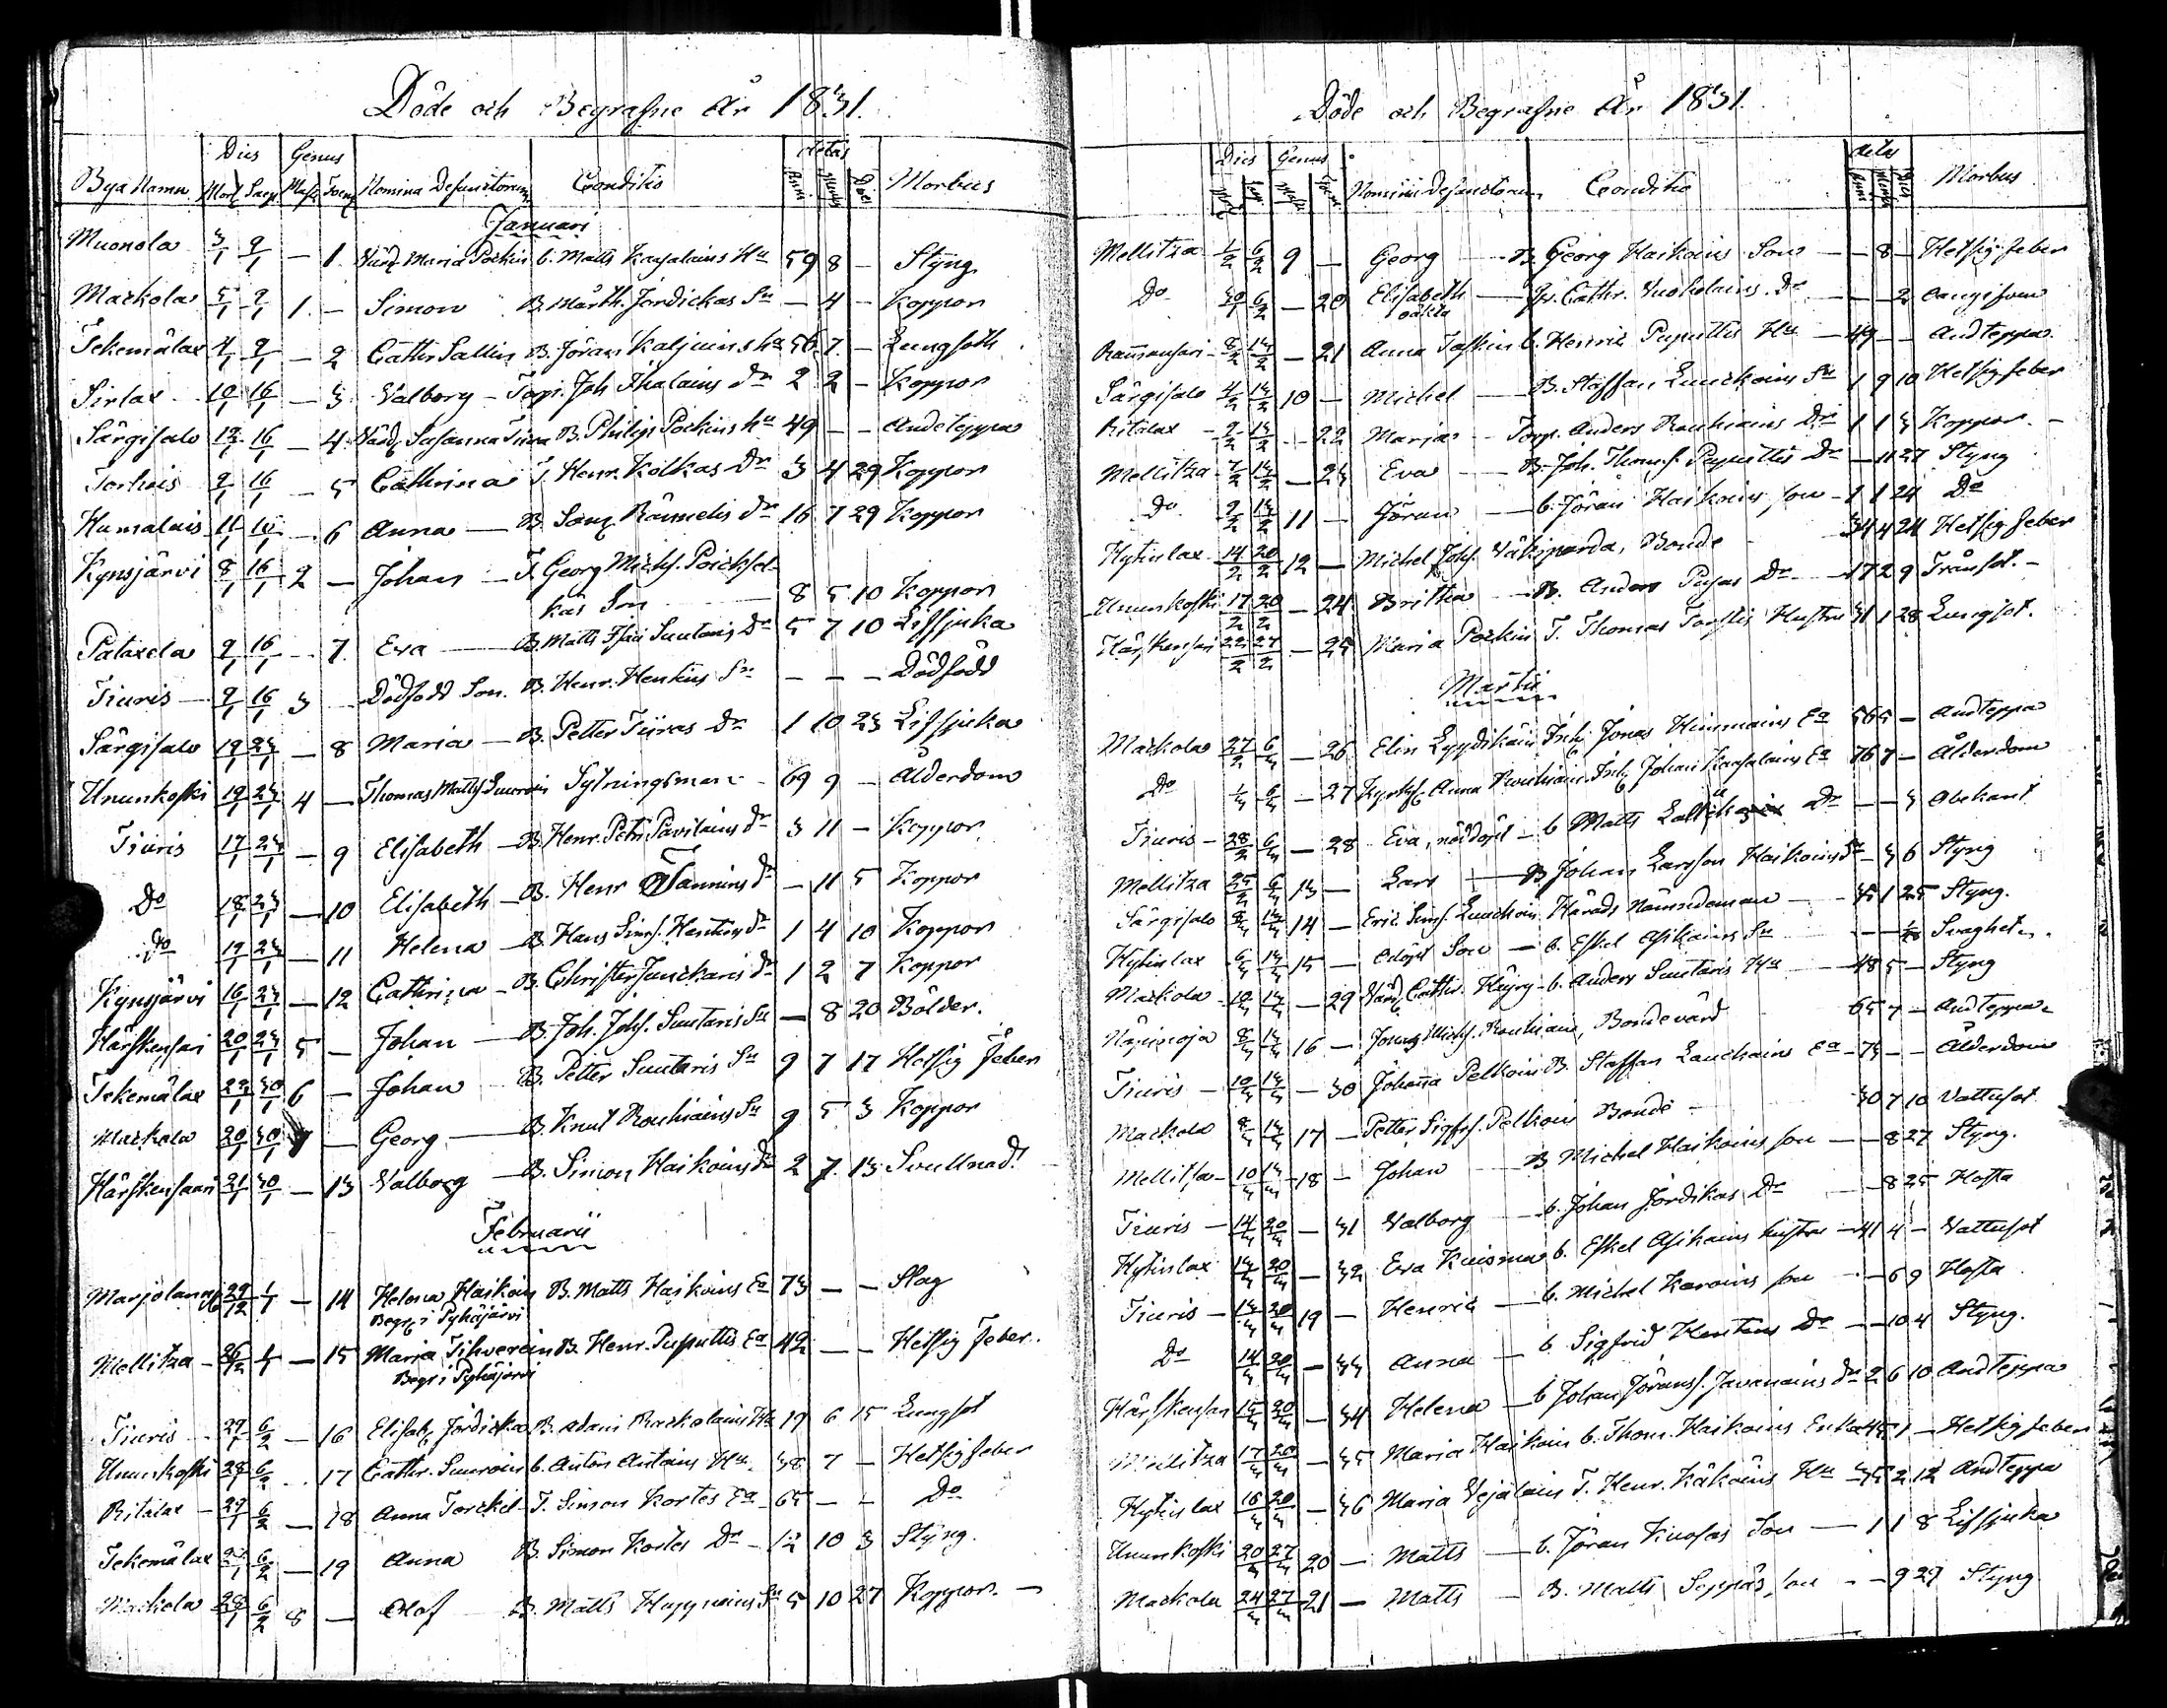 Döde och Begrafne År 1831.
Dies Genus Aetas
Bya Namn Mort Sep Mask Foem Nomina Defunctorum Conditio Anni Mens Dies Morbus
Januari
Muonola 3/1 9/1 — 1. Maria Pockin B. Matts Karjalains Hu 59 8 — Styng
Mackola 5/1 9/1 1. — Simon B. Mårth. Jördickas Sn — 4 — Koppor
Tekemälax 4/1 9/1 — 2 Cathr Sallin B. Jöran Kaljuins hu 56 7 — Lungsoth
Sirlax 10/1 16/1 — 3 Valborg — Torp. Joh Ihalains Dr 2 2 — Koppor
Särgisalo 12/1 16/1 — 4 Susanna Tiira B. Philip Pockins hu 49 — — Andeteppa
9/1 16/1 — 5 Cathrina T. Henr. Kolkas Dr 3 4 29 Koppor
Kumalais 11/1 16/1 — 6 Anna — B. Rämelis Dr 16 7 29 Koppor
Kynsjärvi 8/1 16/1 2 — Johan — T. Georg Michs. Poicksel-
käs Son 8 5 10 Koppor
Pataxela 9/1 16/1 7. Eva — B. Matts Suutaris Dr 5 7 10 Lifsjuka
Tiuris — 9/1 16/1 3 Dödfödd Son. B. Henr. Henttus Sn — — — Dödfödd
Särgisalo 19/1 23/1 — 8 Maria — B. Petter Tiiras Dr 1 10 23 Lifsjuka
Ununkoski 19/1 23/1 4 — Thomas Matts. Sytningsman — 69 9 — Ålderdom
Tiuris 17/1 23/1 — 9 Elisabeth — B. Henr. Petr. Pavilains dr 3 11 — Koppor
Do 18/1 23/1 — 10 Elisabeth — B. Henr Tannins dr — 11 5 Koppor
Do 19/1 23/1 — 11 Helena — B. Hans Sims. Henttus dr 1 4 10 Koppor
Kynsjärvi 16/1 23/1 — 12 Cathrina — B. Christer Junckaris dr 1 2 7 Koppor
Härskensari 20/1 23/1 5 — Johan — B. Joh. Johs. Suutaris Sn — 8 20 Bölder.
Tekemälax 22/1 30/1 6 — Johan B. Petter Suutaris Sn 9 7 17 Hetsig Feber
Mackola 20/1 30/1 7 — Georg — B. Knut Rouhiains Sn 9 5 3 Koppor
Härskensaari 21/1 30/1 — 13 Valborg — B. Simon Haikoins dr 2 7 13 Svullnad.
Februarii
29/12 1/1 — 14 Helena Haikoin B. Matts Haikoins Ea 73 — — Slag
Begr. i Pyhäjärvi
Mellitza — 26/12 1/1 — 15 Maria Tihverein B. Henr. Puputtis Ea 42 — — Hetsig Feber.
Begr. i Pyhäjärvi
Tiuris 29/1 6/2 — 16 Elisab. Jördicka B. Adam Rackolains Hu 19 6 15 Lungsot
Ununkoski 28/1 6/2 17 Cathr. Suuroin B. Anton Antains Hu 38 7 — Hetsig feber
Ritalax — 29/1 6/2 — 18 Anna Torckel T. Simon Kortes Ea 65 — — Do
Tekemälax 29/1 6/2 — 19 Anna B. Simon Kortes Dr 12 10 3 Styng.
Mackola 28/1 6/2 8 — Olof B. Matts Huppoins Sn 5 10 27 Koppor. —
Döde och Begrafne År 1831.
Dies Genus Aetas
Nomina Defunctorum Conditio Anni Mens Dies Morbus
Mellitza 1/2 6/2 9 — Georg — B. Georg Haikoins Son — — 8 — Hetsig feber
Do 30/1 6/2 — 20 Elisabeth — Cathr. Vuoholains Dr — — 2
oäkta
8/2 13/2 — 21 Anna Taskin B. Henric Puputtis Hu — 49 — — Andteppa.
Särgisalo 4/2 13/2 10 — Michel — B. Staffan Luuckoins Sn 1 9 10 Hetsig feber
Ritalax — 9/2 13/2 — 22 Maria — Torp. Anders Rouhiains Dr 1 1 3 Koppor. —
Mellitza 7/2 13/2 — 23 Eva — B. Joh. Thoms. Puputtis Dr — 11 27 Styng
Do 9/2 13/2 11 — Jöran — B. Jöran Haikoins son — 1 1 24 Do
Hytinlax 14/2 20/2 12 — Michel Johs. Väkiparda, Bonde 34 4 24 Hetsig feber
Ununkoski 17/2 20/2 — 24 Britha — B. Anders Pujas Dr — 17 2 9 Trånsot. —
Härskensari 22/2 27/2 — 25 Maria Pockin T. Thomas Torstis Hustru 31 1 28 Lungsot.
Martii
Mackola 27/2 6/3 — 26 Elin Lyydikäin Inh. Jonas Himmains Ea 56 5 — Andteppa
Do 1/3 6/3 — 27 Anna Rouhiain Inh. Johan Karjalains Ea 76 7 — Ålderdom
Tiuris — 28/2 6/3 — 28 Eva, nöddöpt — B. Matts Dr — — 3 Obekant
Mellitza 25/2 6/3 13 — Lars — B Johan Larsson Haikoins Sn — 3 6 Styng
Särgisalo 8/3 13/3 14 — Eric Sims. Luuckoin Härads Nämndeman — 45 1 25 Styng.
Hytinlax 6/3 13/3 15 — odöpt Son — B. Eskel Asikains Sn — — Svaghet.
Mackola 10/3 13/3 — 29 Cathr. Häyry B. Anders Suutaris Hu — 48 5 — Styng
8/3 13/3 16 — Jonas Michs. Rouhiain, Bondevärd 65 7 — Andteppa
Tiuris — 10/3 13/3 — 30 Johanna Pelkoin B. Staffan Lauckains Ea — 73 — — Ålderdom
Mackola 8/3 13/3 17 — Petter Sigfrs. Pelkoin Bonde — 30 7 10 Vattusot
Mellitza — 10/3 13/3 18 — Johan B Michel Haikoins son — — 8 27 Styng.
Tiuris — 14/3 20/3 — 31 Valborg — B. Johan Jördikas Dr — 8 25 Hosta
Hytinlax 13/3 20/3 — 32 Eva Kuisma B. Eskel Asikains hustru — 41 4 — Vattusot
Tiuris — 13/3 20/3 19 — Henric — B. Michel Karvains son — 6 9 Hosta
Do 14/3 20/3 — 33 Anna — B. Sigfrid Henttus Dr — — 10 4 Styng.
Härskensari 15/3 20/3 — 34 Helena — B Johan Jörans. Javanains dr 2 6 10 Andteppa
Mellitza 17/3 20/3 — 35 Maria Haikoin B. Thom. Haikoins Enka 45 1 — Hetsig feber
Hytinlax 16/3 20/3 — 36 Maria Vejälain T. Henr. Käkoins Hu 35 2 12 Andteppa
Ununkoski 20/3 27/3 20 — Matts — B. Jöran Kuosas Son — 1 1 8 Lifsjuka
Mackola 24/3 27/3 21 — Matts — B. Matts Seppäs son — — 9 29 Styng